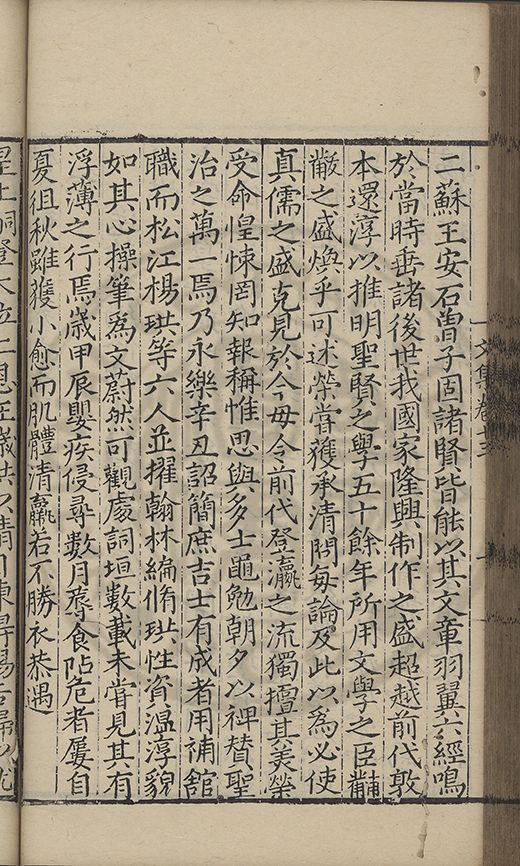 二蘇王安石曾子固諸賢皆能以其文章羽翼六經鳴
於當時垂諸後世我國家隆興制作之盛超越前代敦
本還淳以推明聖賢之學五十餘年所用文學之臣黼
黻之盛煥乎可述榮嘗獲承清問每論及此以為必使
真儒之盛克見於今毋令前代登瀛之流獨擅其美榮
受命惶悚罔知報稱惟思與多士黽勉朝夕以裨贊聖
治之萬一焉乃永樂辛丑詔簡庶吉士有成者用補舘
職而松江楊珙等六人並擢翰林編脩珙性資溫淳貌
如其心操筆為文蔚然可觀處詞垣數載未嘗見其有
浮薄之行焉歲甲辰嬰疾侵尋數月蓐食阽危者屢自
夏徂秋雖獲小愈而肌體清羸若不勝衣恭遇
文集卷十五